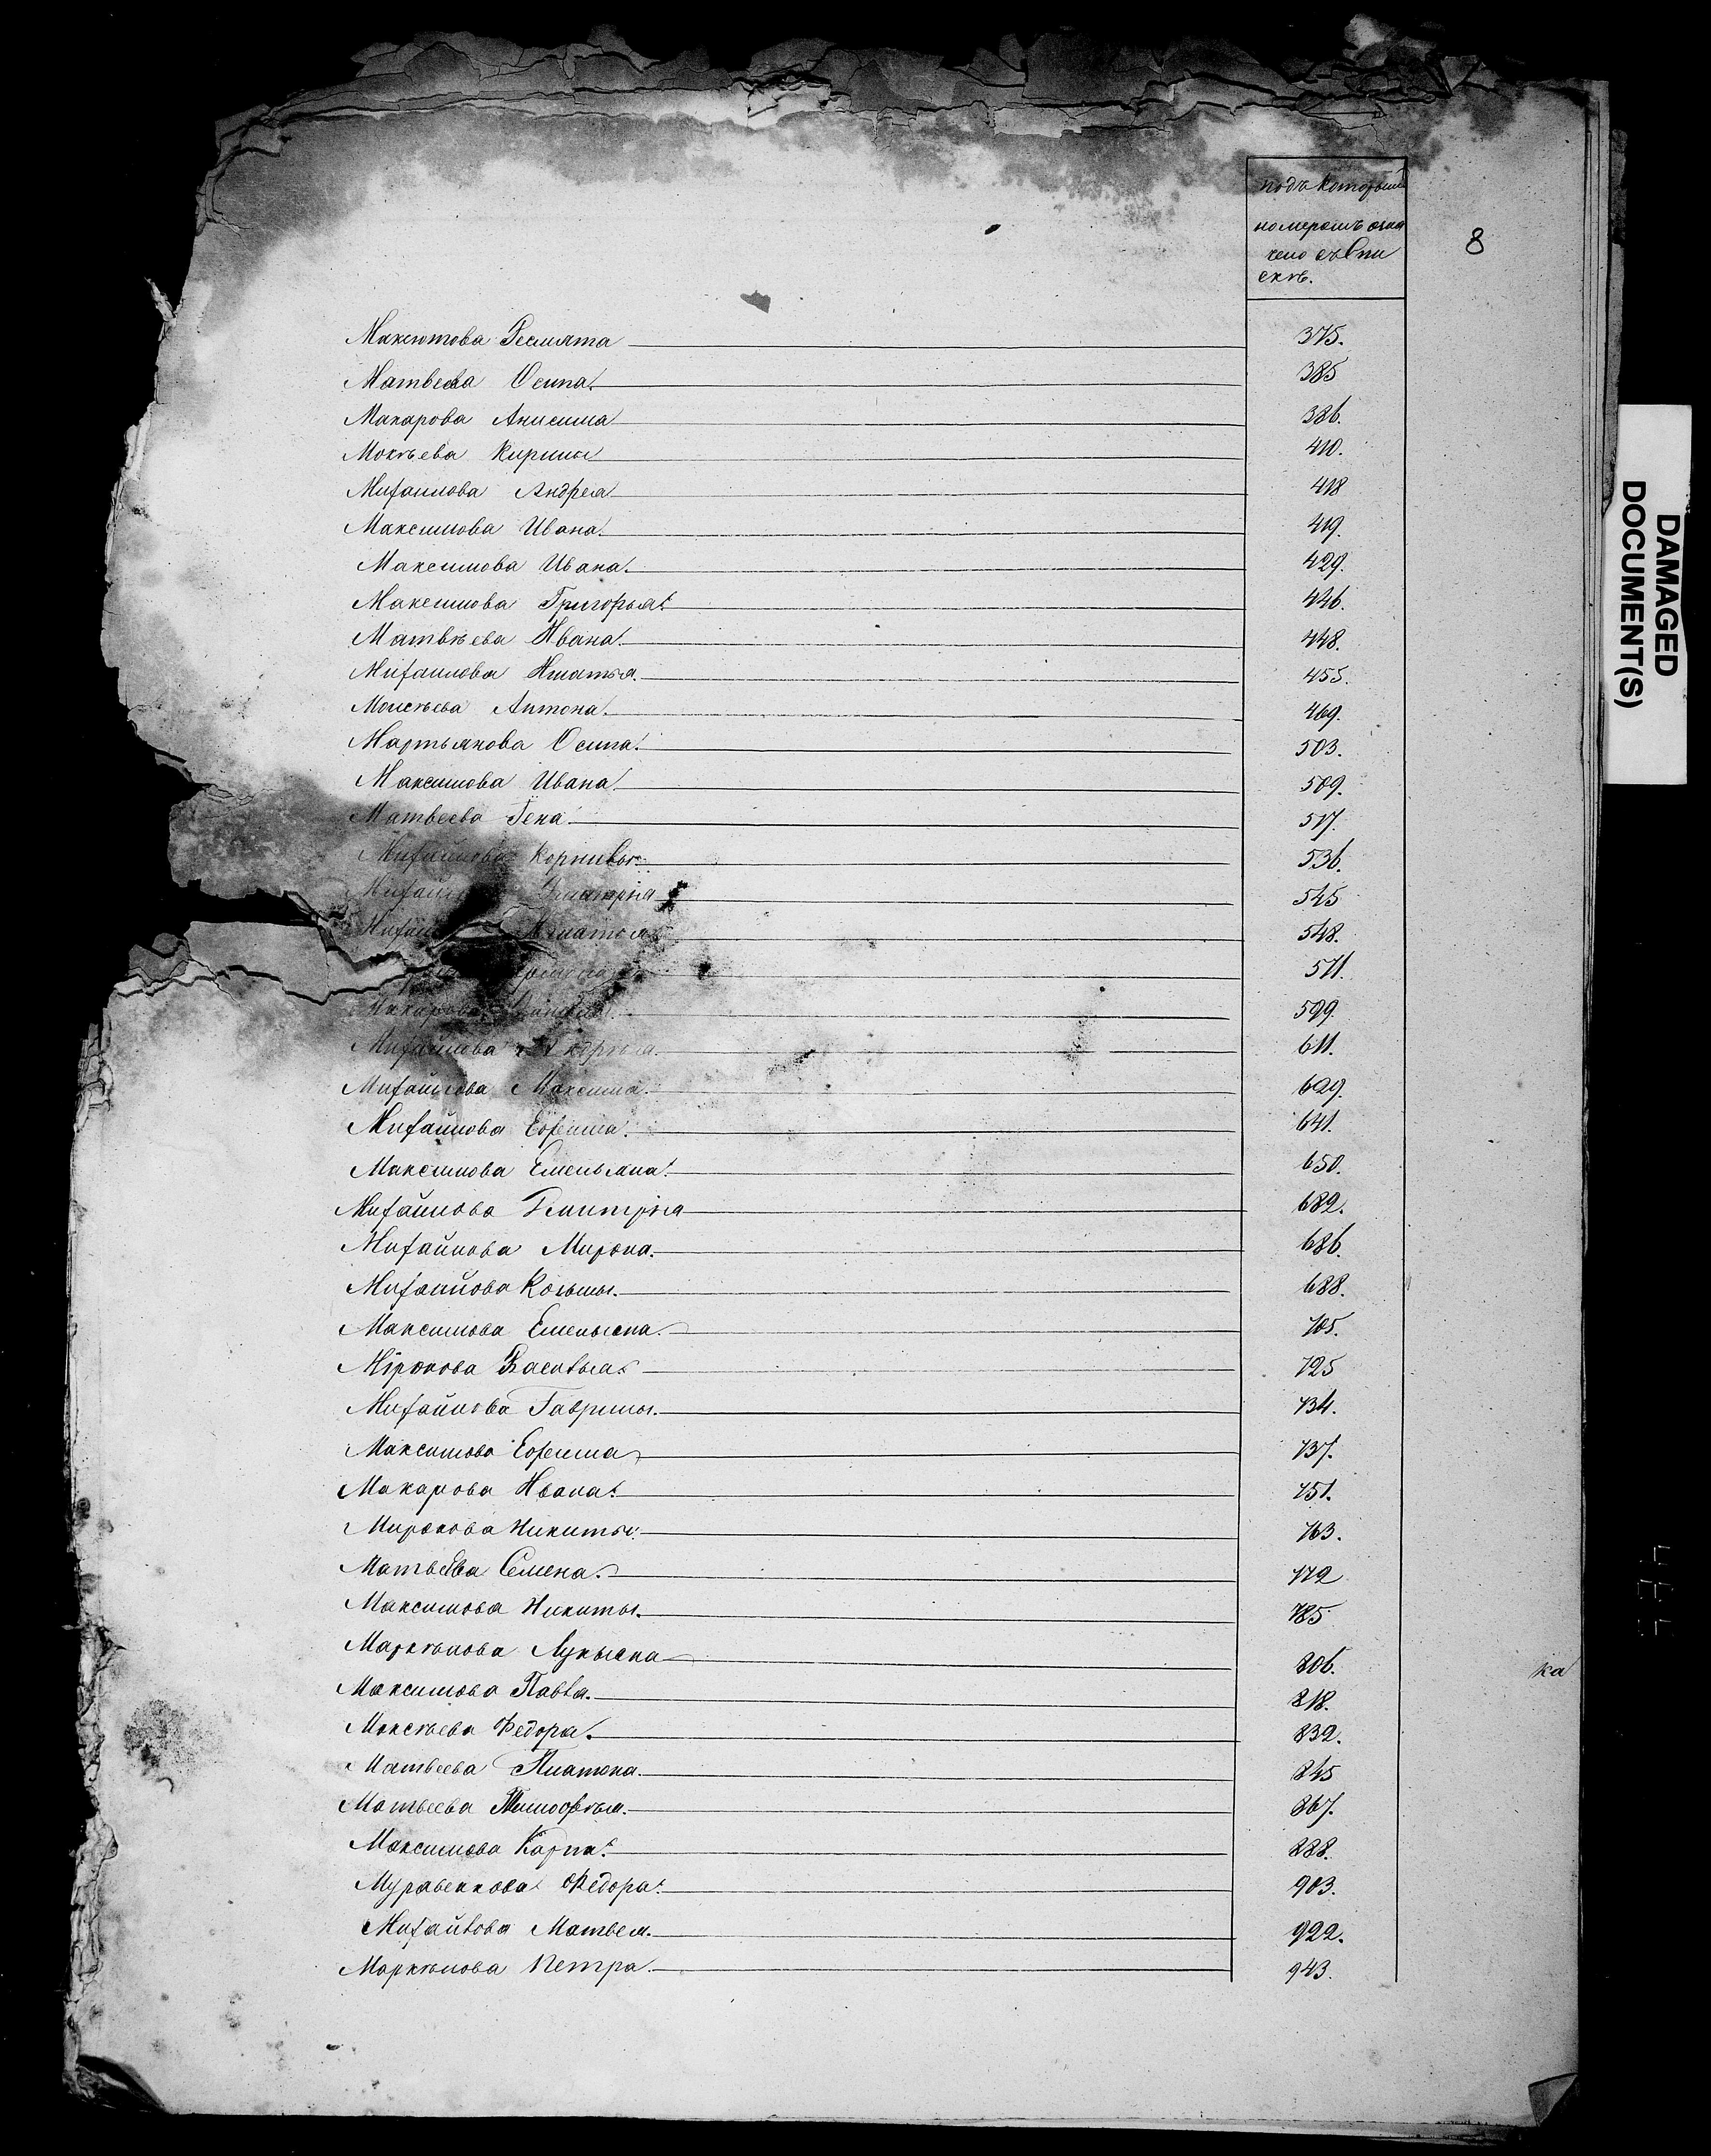 подъ которымъ
номеромъ озна
чено съ Спи
скѣ.
8
DAMAGED
DOCUMENT(S)
Максютова 375.
Матвеева Осипа. 385
Макарова Анисима 386.
Мокѣева Кирилы 410.
Михаилова Андрея 418
Максимова Ивана. 419.
Максимова Ивана. 429.
Максимова Григорья. 446.
Матвѣева Ивана. 448.
Михаилова Игнатья. 455.
Моисѣева Антона. 469.
Мартьянова Осипа. 503.
Максимова Ивана. 509.
Матвеева 517.
Михайлова Корнилы. 536.
Михайлова Дмитрія 545
Михай Игнатья 548.
571.
Макарова 599.
Михайлова 611.
Михайлова Максима. 629.
Михайлова Ефима. 641.
Максимова Емельяна. 650.
Михайлова Дмитрія 682.
Михайлова Мирона. 686.
Михайлова Козьмы. 688.
Максимова Емельяна. 705.
Міронова Василья. 725
Михайлова Гаврилы. 734.
Максимова Ефима 737.
Макарова Ивана. 751.
Миронова Никиты. 763.
Матвеева Семена. 772
Максимова Никиты. 785
Маркѣлова Лукьяна 806.
Максимова Павла. 818.
Моисѣева Федора. 832.
Матвеева Платона. 845
Матвеева Тимофѣя. 867.
Максимова Карпа. 888.
Муравенкова Федора. 903.
Михайлова Матвея. 922.
Маркѣлова Петра. 943.
ка